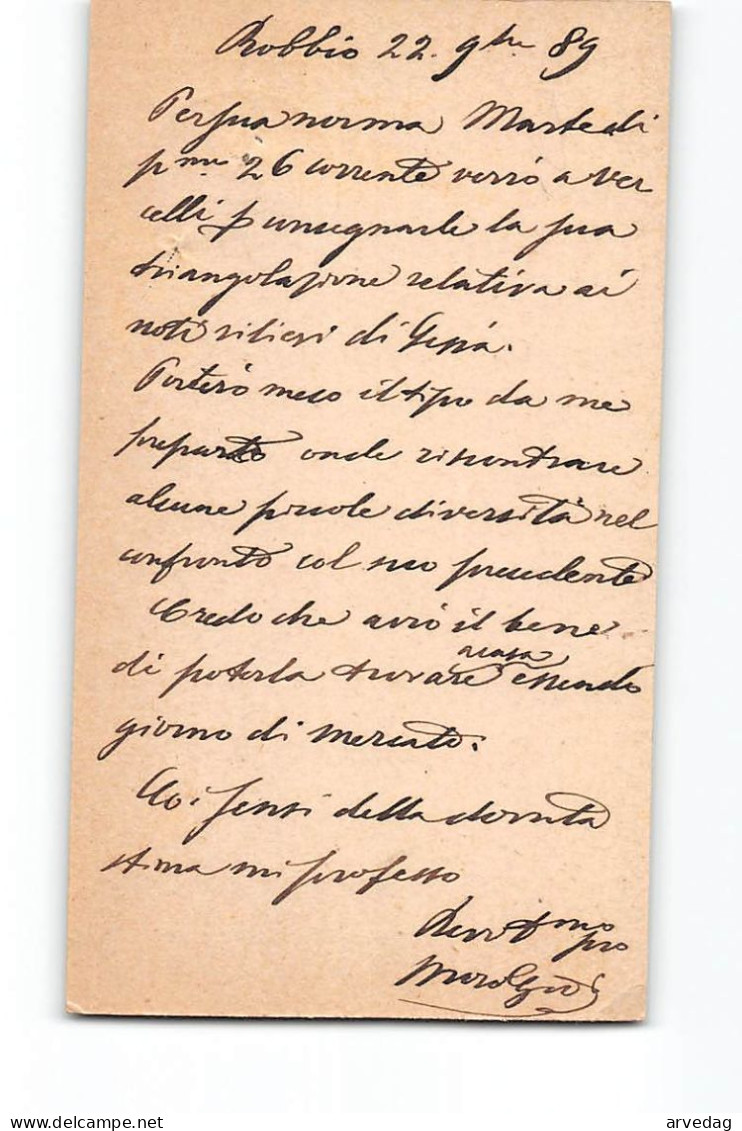 Robbio 22. 9bre 89
Per sua norma Martedi
pmo 26 corrente verrò a Ver
celli p consegnarle la sua
triangolazione relativa ai
noti rilievi di
Porterò meco il tipo da me
preparato onde riscontrare
alcune piccole diversità nel
confronto col suo precedente
Credo che avrò il bene
di poterla trovare a casa essendo
giorno di mercato.
Coi sensi della dovuta
stima mi professo
Devotmo
DELCAMPE.NET
arvedag